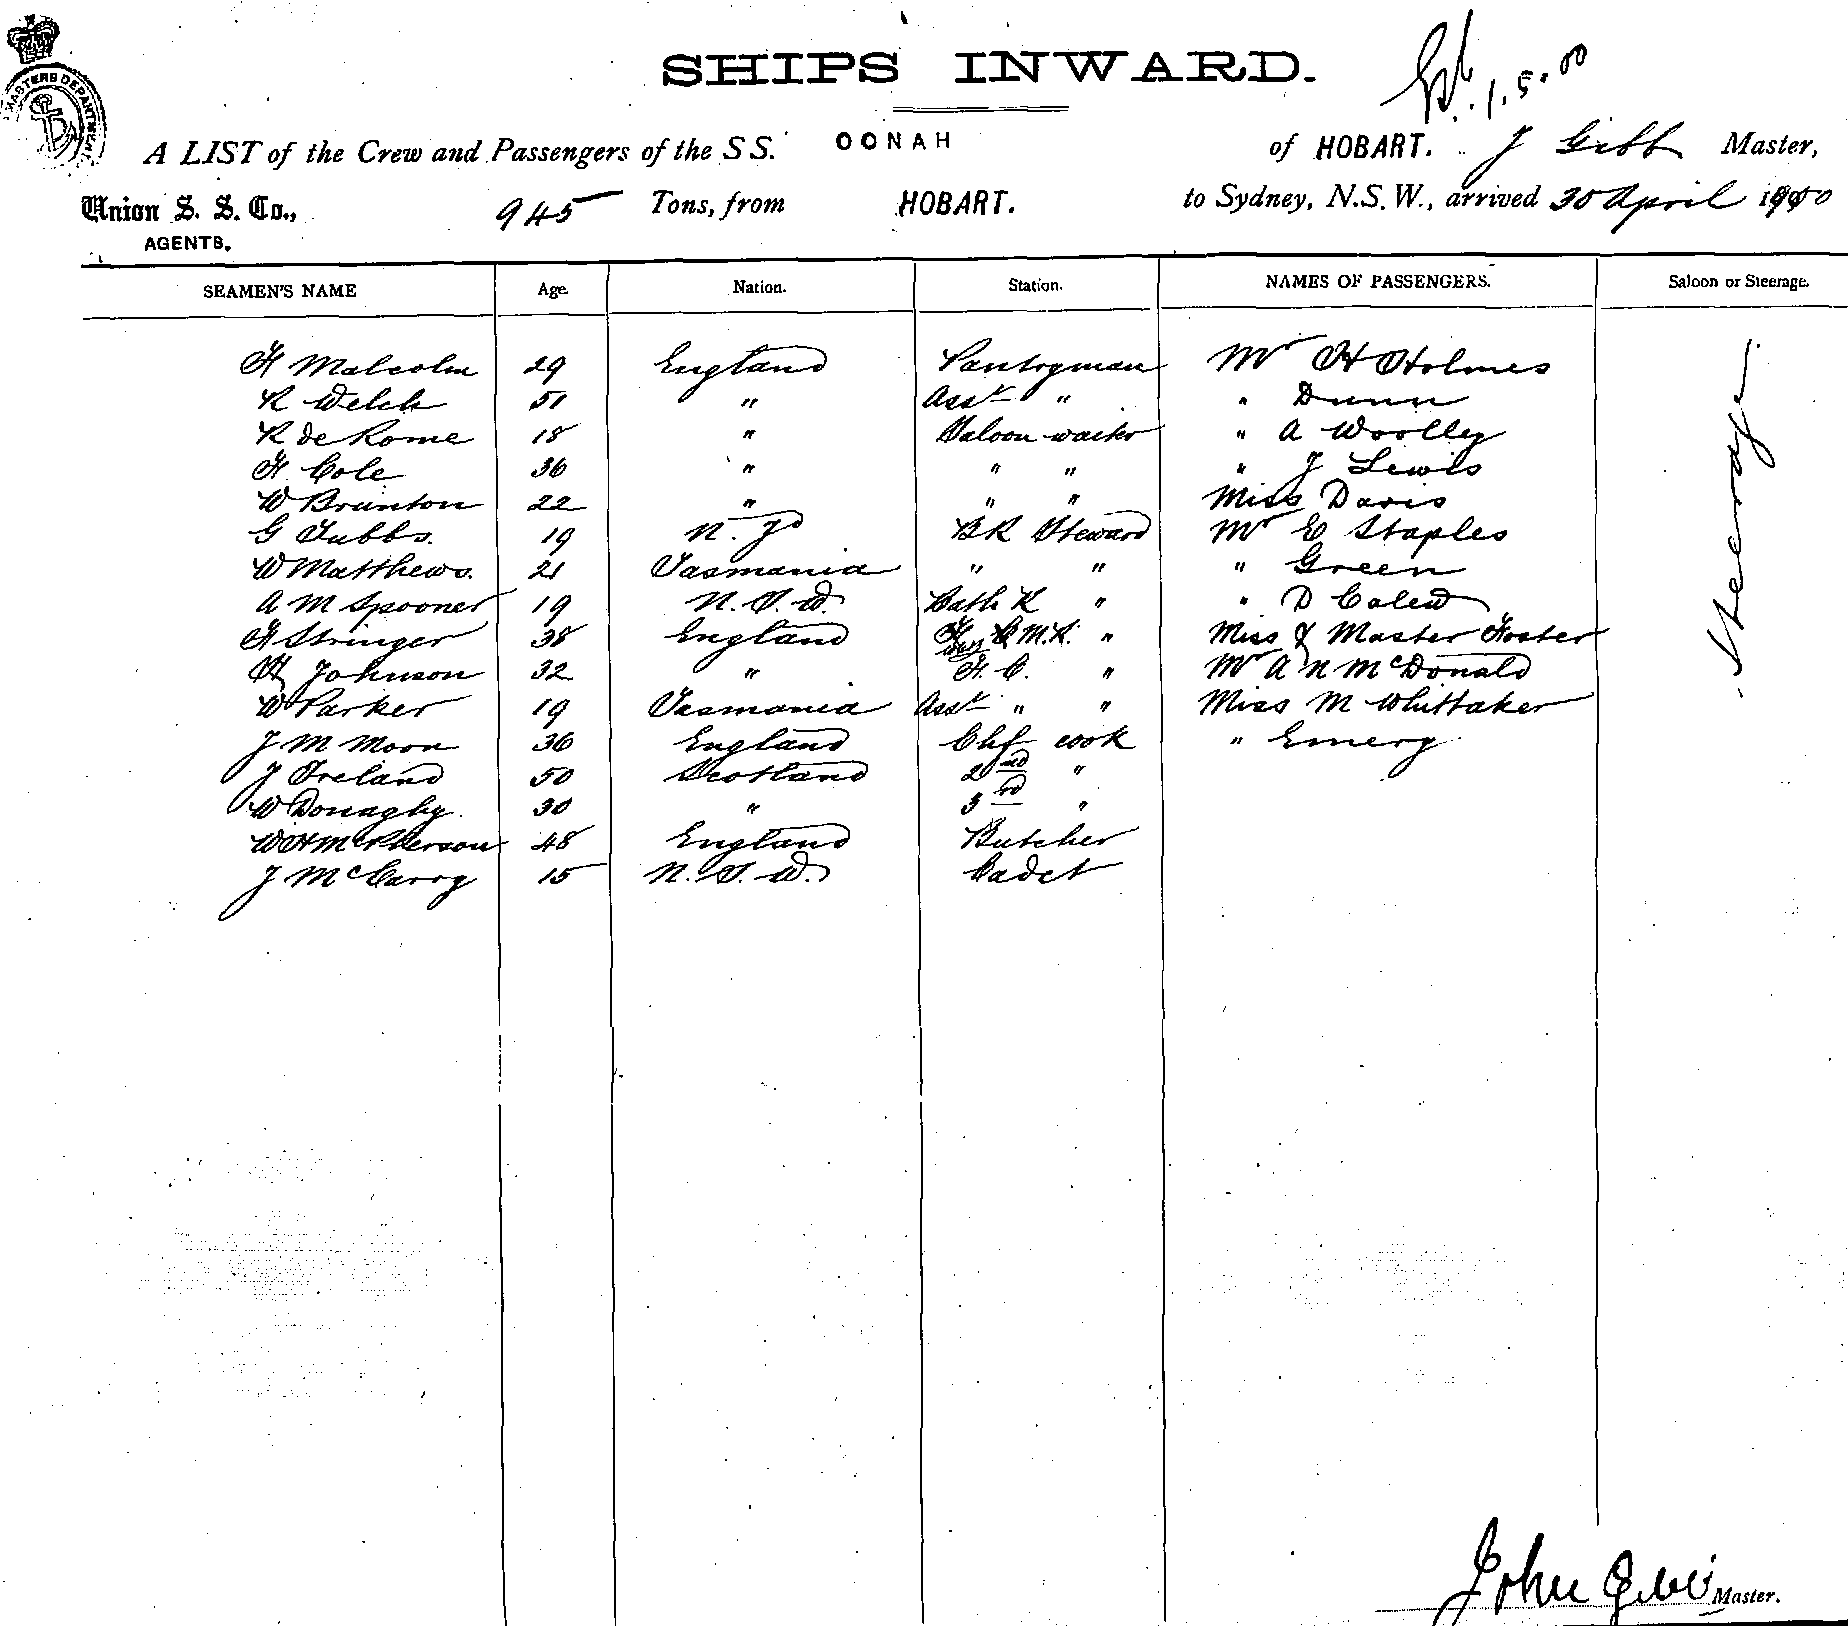 SHIPS INWARD.
1.5.00
MASTERS DEPARTMENT
A LIST of the Crew and Passengers of the SS. OONAH of HOBART. J Gibb Master,
Union S. S. Co., 945 Tons, from HOBART. to Sydney, N.S.W., arrived 30 April 1900
AGENTS.
SEAMEN'S NAME Age. Nation. Station. NAMES OF PASSENGERS. Saloon or Steerage.
H Malcolm 29 England Pantryman Mr H Holmes
R Welch 51 " Asst " " Dunn
R de Rome 18 " Saloon waiter " A Woolley
H Cole 36 " " " " J Lewis
W Brunton 22 " " " Miss Davis
G Tubbs. 19 N. Zd BR Steward Mr E Staples
W Matthews. 21 Tasmania " " " Green
A M Spooner 19 N. S. W. Bath R " " D Calew
H Stringer 38 England " Miss & Master Foster
H Johnson 32 " F. C. " Mr A N McDonald
W Parker 19 Tasmania Asst " " Miss M Whittaker
J M Moon 36 England Chf cook " Emery
J Ireland 50 Scotland 2nd "
W Donaghy. 30 " 3rd "
W H McPherson 48 England Butcher
J McGarry 15 N. S. W. Cadet
Steerage
John Gibb Master.